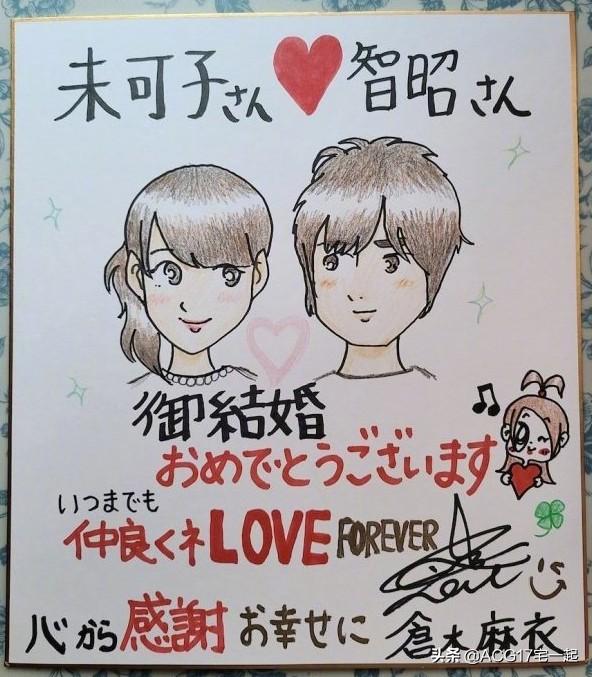 未可子さん ♥ 智昭さん
御結婚
おめでとうございます
いつまでも
仲良くネ LOVE FOREVER
心から感謝 お幸せに 倉木麻衣
头条 @ACG17宅一起